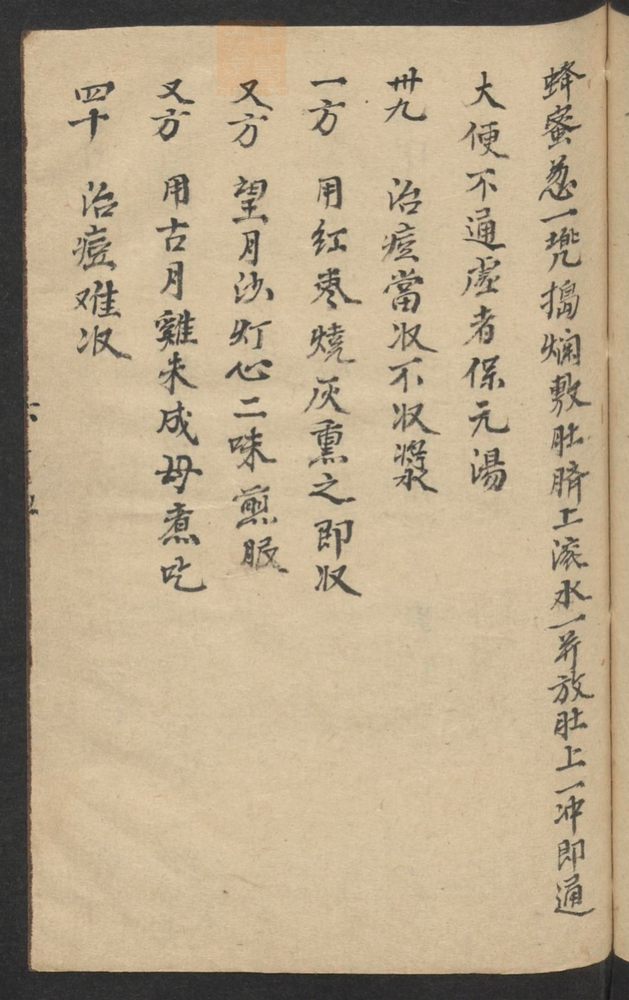 蜂蜜葱一兠搗爛敷肚臍上滚水一并放肚上一冲即通
大便不通虚者保元湯
卅九 治痘當收不收漿
一方 用红枣燒灰熏之即收
又方 望月沙灯心二味煎服
又方 用古月雞未成母煮吃
四十 治痘难收